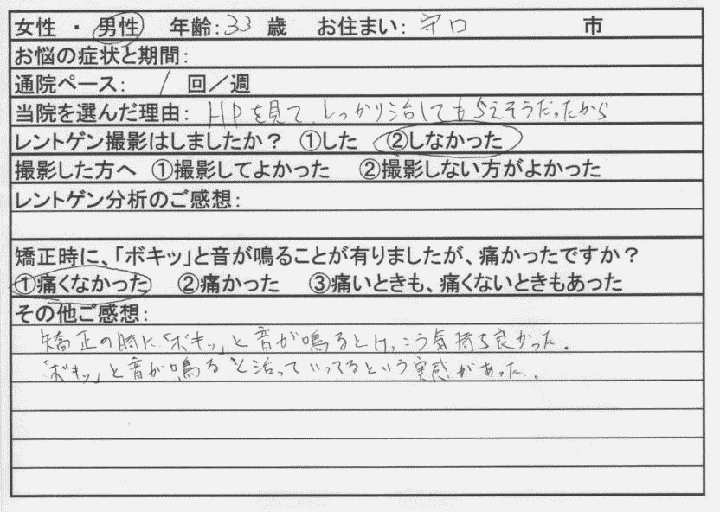 女性 ・ 男性 年齢:33 歳 お住まい: 守口 市
お悩の症状と期間:
通院ペース: 1 回／週
当院を選んだ理由: HPを見て、しっかり治してもらえそうだったから
レントゲン撮影はしましたか？ ①した ②しなかった
撮影した方へ ①撮影してよかった ②撮影しない方がよかった
レントゲン分析のご感想:
矯正時に、「ボキッ」と音が鳴ることが有りましたが、痛かったですか？
①痛くなかった ②痛かった ③痛いときも、痛くないときもあった
その他ご感想:
矯正の時に「ボキッ」と音が鳴るとけっこう気持ち良かった。
「ボキッ」と音が鳴ると治っていってるという実感があった。